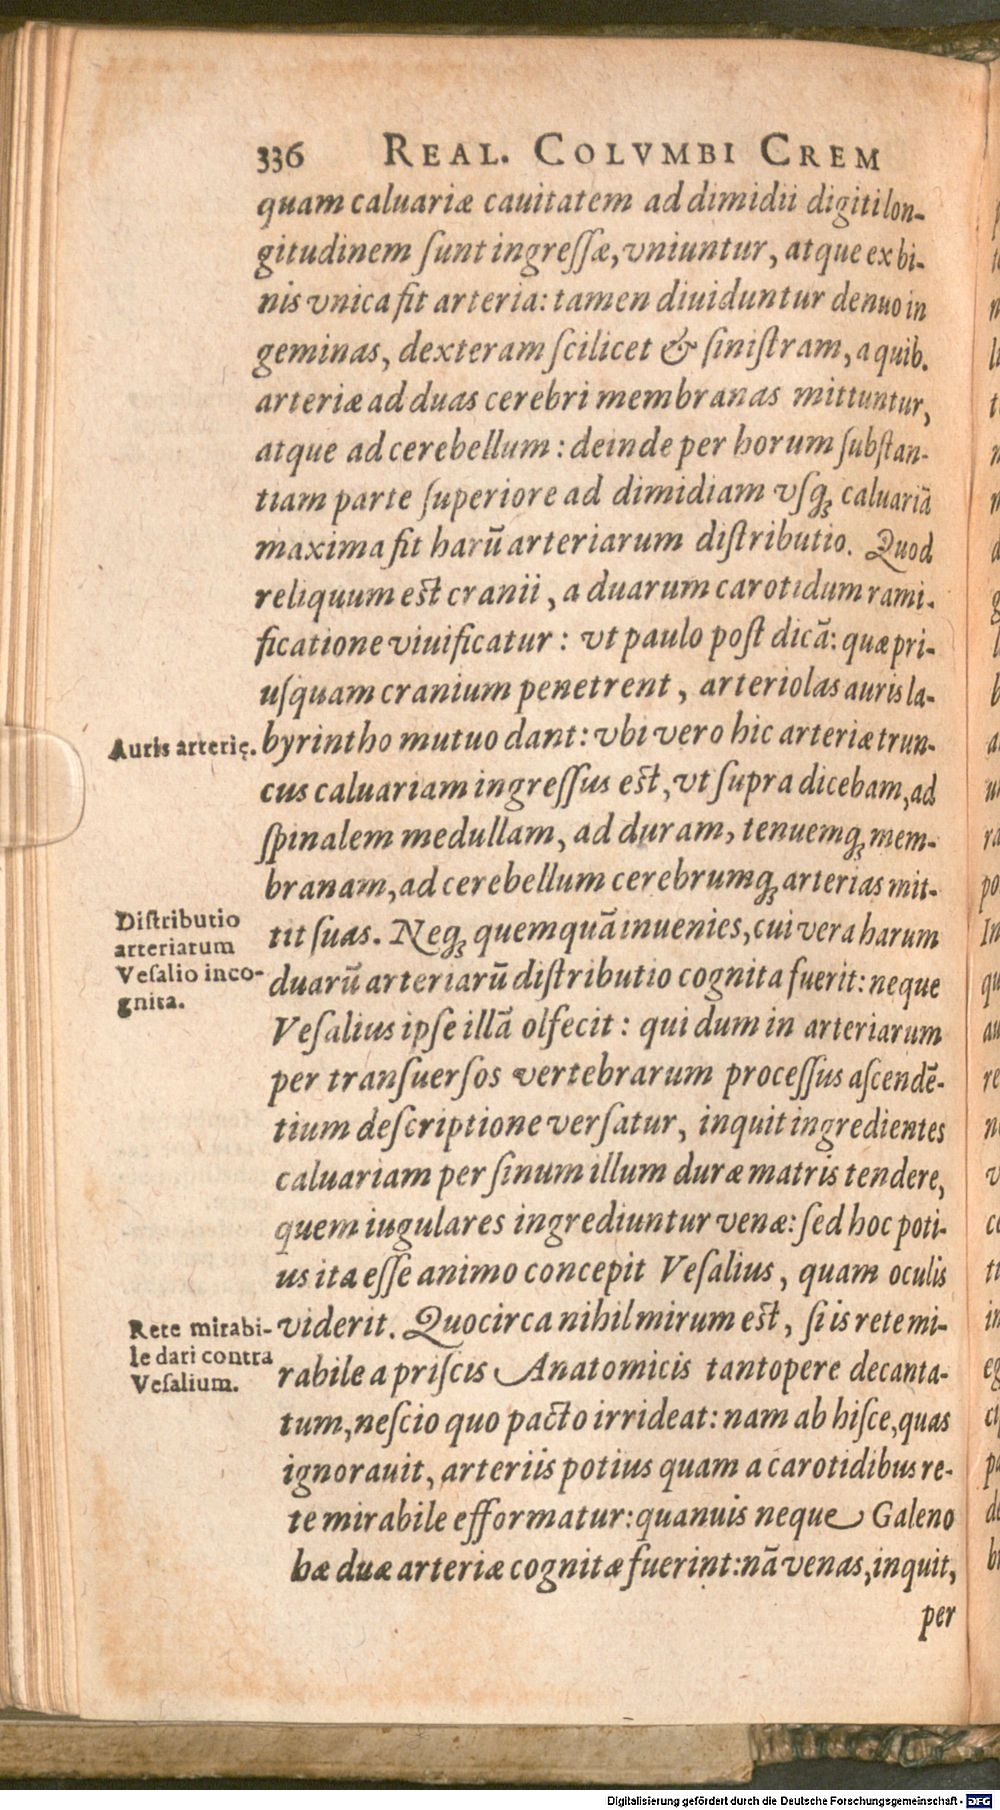 336 REAL. COLVMBI CREM
quam caluariæ cauitatem ad dimidii digiti lon-
gitudinem ſunt ingreſſæ, vniuntur, atque ex bi-
nis vnica fit arteria: tamen diuiduntur denuo in
geminas, dexteram ſcilicet & ſiniſtram, a quib.
arteriæ ad duas cerebri membranas mittuntur,
atque ad cerebellum: deinde per horum ſubſtan-
tiam parte ſuperiore ad dimidiam vſq; caluariã
maxima fit harũ arteriarum diſtributio. Quod
reliquum eſt cranii, a duarum carotidum rami-
ficatione viuificatur: vt paulo poſt dicã: quæ pri-
uſquam cranium penetrent, arteriolas auris la-
Auris arterię.
byrintho mutuo dant: vbi vero hic arteriæ trun-
cus caluariam ingreſſus eſt, vt ſupra dicebam, ad
ſpinalem medullam, ad duram, tenuemq; mem-
branam, ad cerebellum cerebrumq; arterias mit-
Diſtributio
arteriarum
Veſalio inco-
gnita.
tit ſuas. Neq; quemquã inuenies, cui vera harum
duarũ arteriarũ diſtributio cognita fuerit: neque
Veſalius ipſe illã olfecit: qui dum in arteriarum
per tranſuerſos vertebrarum proceſſus aſcendẽ-
tium deſcriptione verſatur, inquit ingredientes
caluariam per ſinum illum duræ matris tendere,
quem iugulares ingrediuntur venæ: ſed hoc poti-
us ita eſſe animo concepit Veſalius, quam oculis
Rete mirabi-
le dari contra
Veſalium.
viderit. Quocirca nihil mirum eſt, ſi is rete mi-
rabile a priſcis Anatomicis tantopere decanta-
tum, neſcio quo pacto irrideat: nam ab hiſce, quas
ignorauit, arteriis potius quam a carotidibus re-
te mirabile efformatur: quanuis neque Galeno
hæ duæ arteriæ cognitæ fuerint: nã venas, inquit,
per
Digitalisierung gefördert durch die Deutsche Forschungsgemeinschaft - DFG